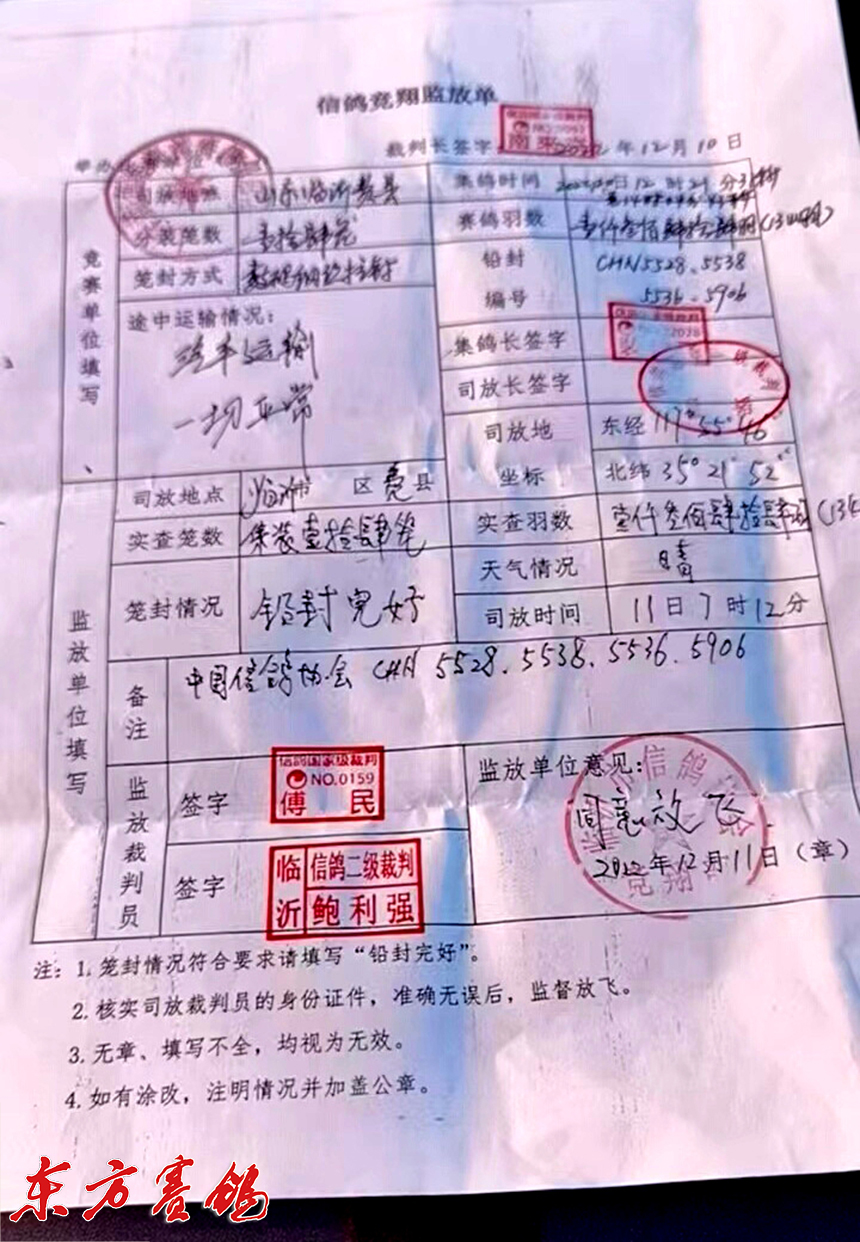 信鸽竞翔监放单
裁判长签字
2022年12月10日
举办
竞赛单位填写
司放地点 山东临沂费县 集鸽时间
分装笼数 壹拾肆笼 赛鸽羽数 壹仟叁佰肆拾肆羽
笼封方式 铅封 CHN5528.5538
编号 5536.5906
途中运输情况:
汽车运输
一切正常
集鸽长签字
司放长签字
司放地 东经117°55′46
坐标 北纬35°21′52″
监放单位填写
司放地点 临沂市 区费县
实查笼数 集装壹拾肆笼 实查羽数 壹仟叁佰肆拾肆羽
笼封情况 铅封完好 天气情况 晴
司放时间 11日7时12分
备注 中国信鸽协会 CHN 5528.5538.5536.5906
监放裁判员
签字
信鸽国家级裁判
NO.0159
傅民
签字
临沂
信鸽二级裁判
鲍利强
监放单位意见:
同意放飞.
2022年12月11日(章)
信鸽
竞翔
注:1.笼封情况符合要求请填写“铅封完好”。
2.核实司放裁判员的身份证件,准确无误后,监督放飞。
3.无章、填写不全,均视为无效。
4.如有涂改,注明情况并加盖公章。
东方赛鸽